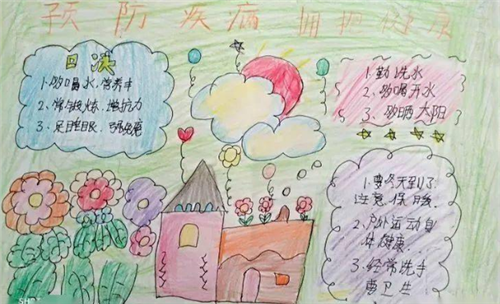 预防疾病 拥抱健康
口决
1、多喝水,营养丰
2、常锻炼,增抗力
3、足睡眠、强免疫
1、勤洗水
2、多喝开水
3、多晒太阳
1、要冬天到了,
注意保暖
2、户外运动身
体健康.
3、经常洗手
讲卫生